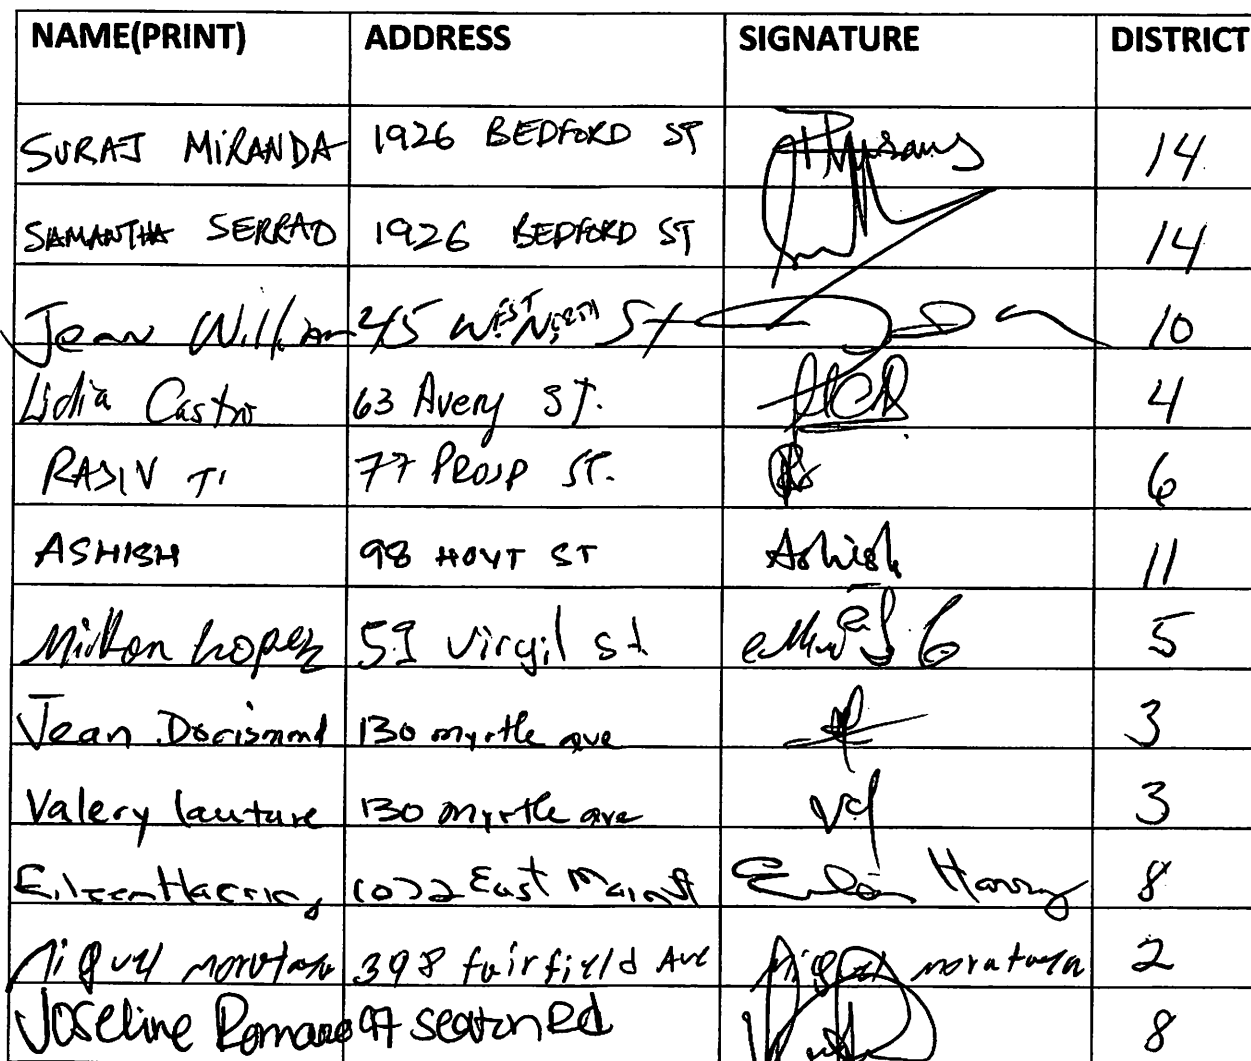 NAME(PRINT) ADDRESS SIGNATURE DISTRICT
SURAJ MIRANDA 1926 BEDFORD ST 14
SAMANTHA SERRAO 1926 BEDFORD ST 14
Jean William 45 WEST North St 10
Lidia Castro 63 Avery St. 4
RAJIV T. 77 PROSP ST. 6
ASHISH 98 HOYT ST Ashish 11
Milton Lopez 59 Virgil st 5
Jean Dorismond 130 myrtle ave 3
Valery lauture 130 myrtle ave 3
Eileen 1022 East Main St 8
Miguel morataya 398 fairfield Ave Miguel morataya 2
Joseline Romano 97 seaton Rd 8